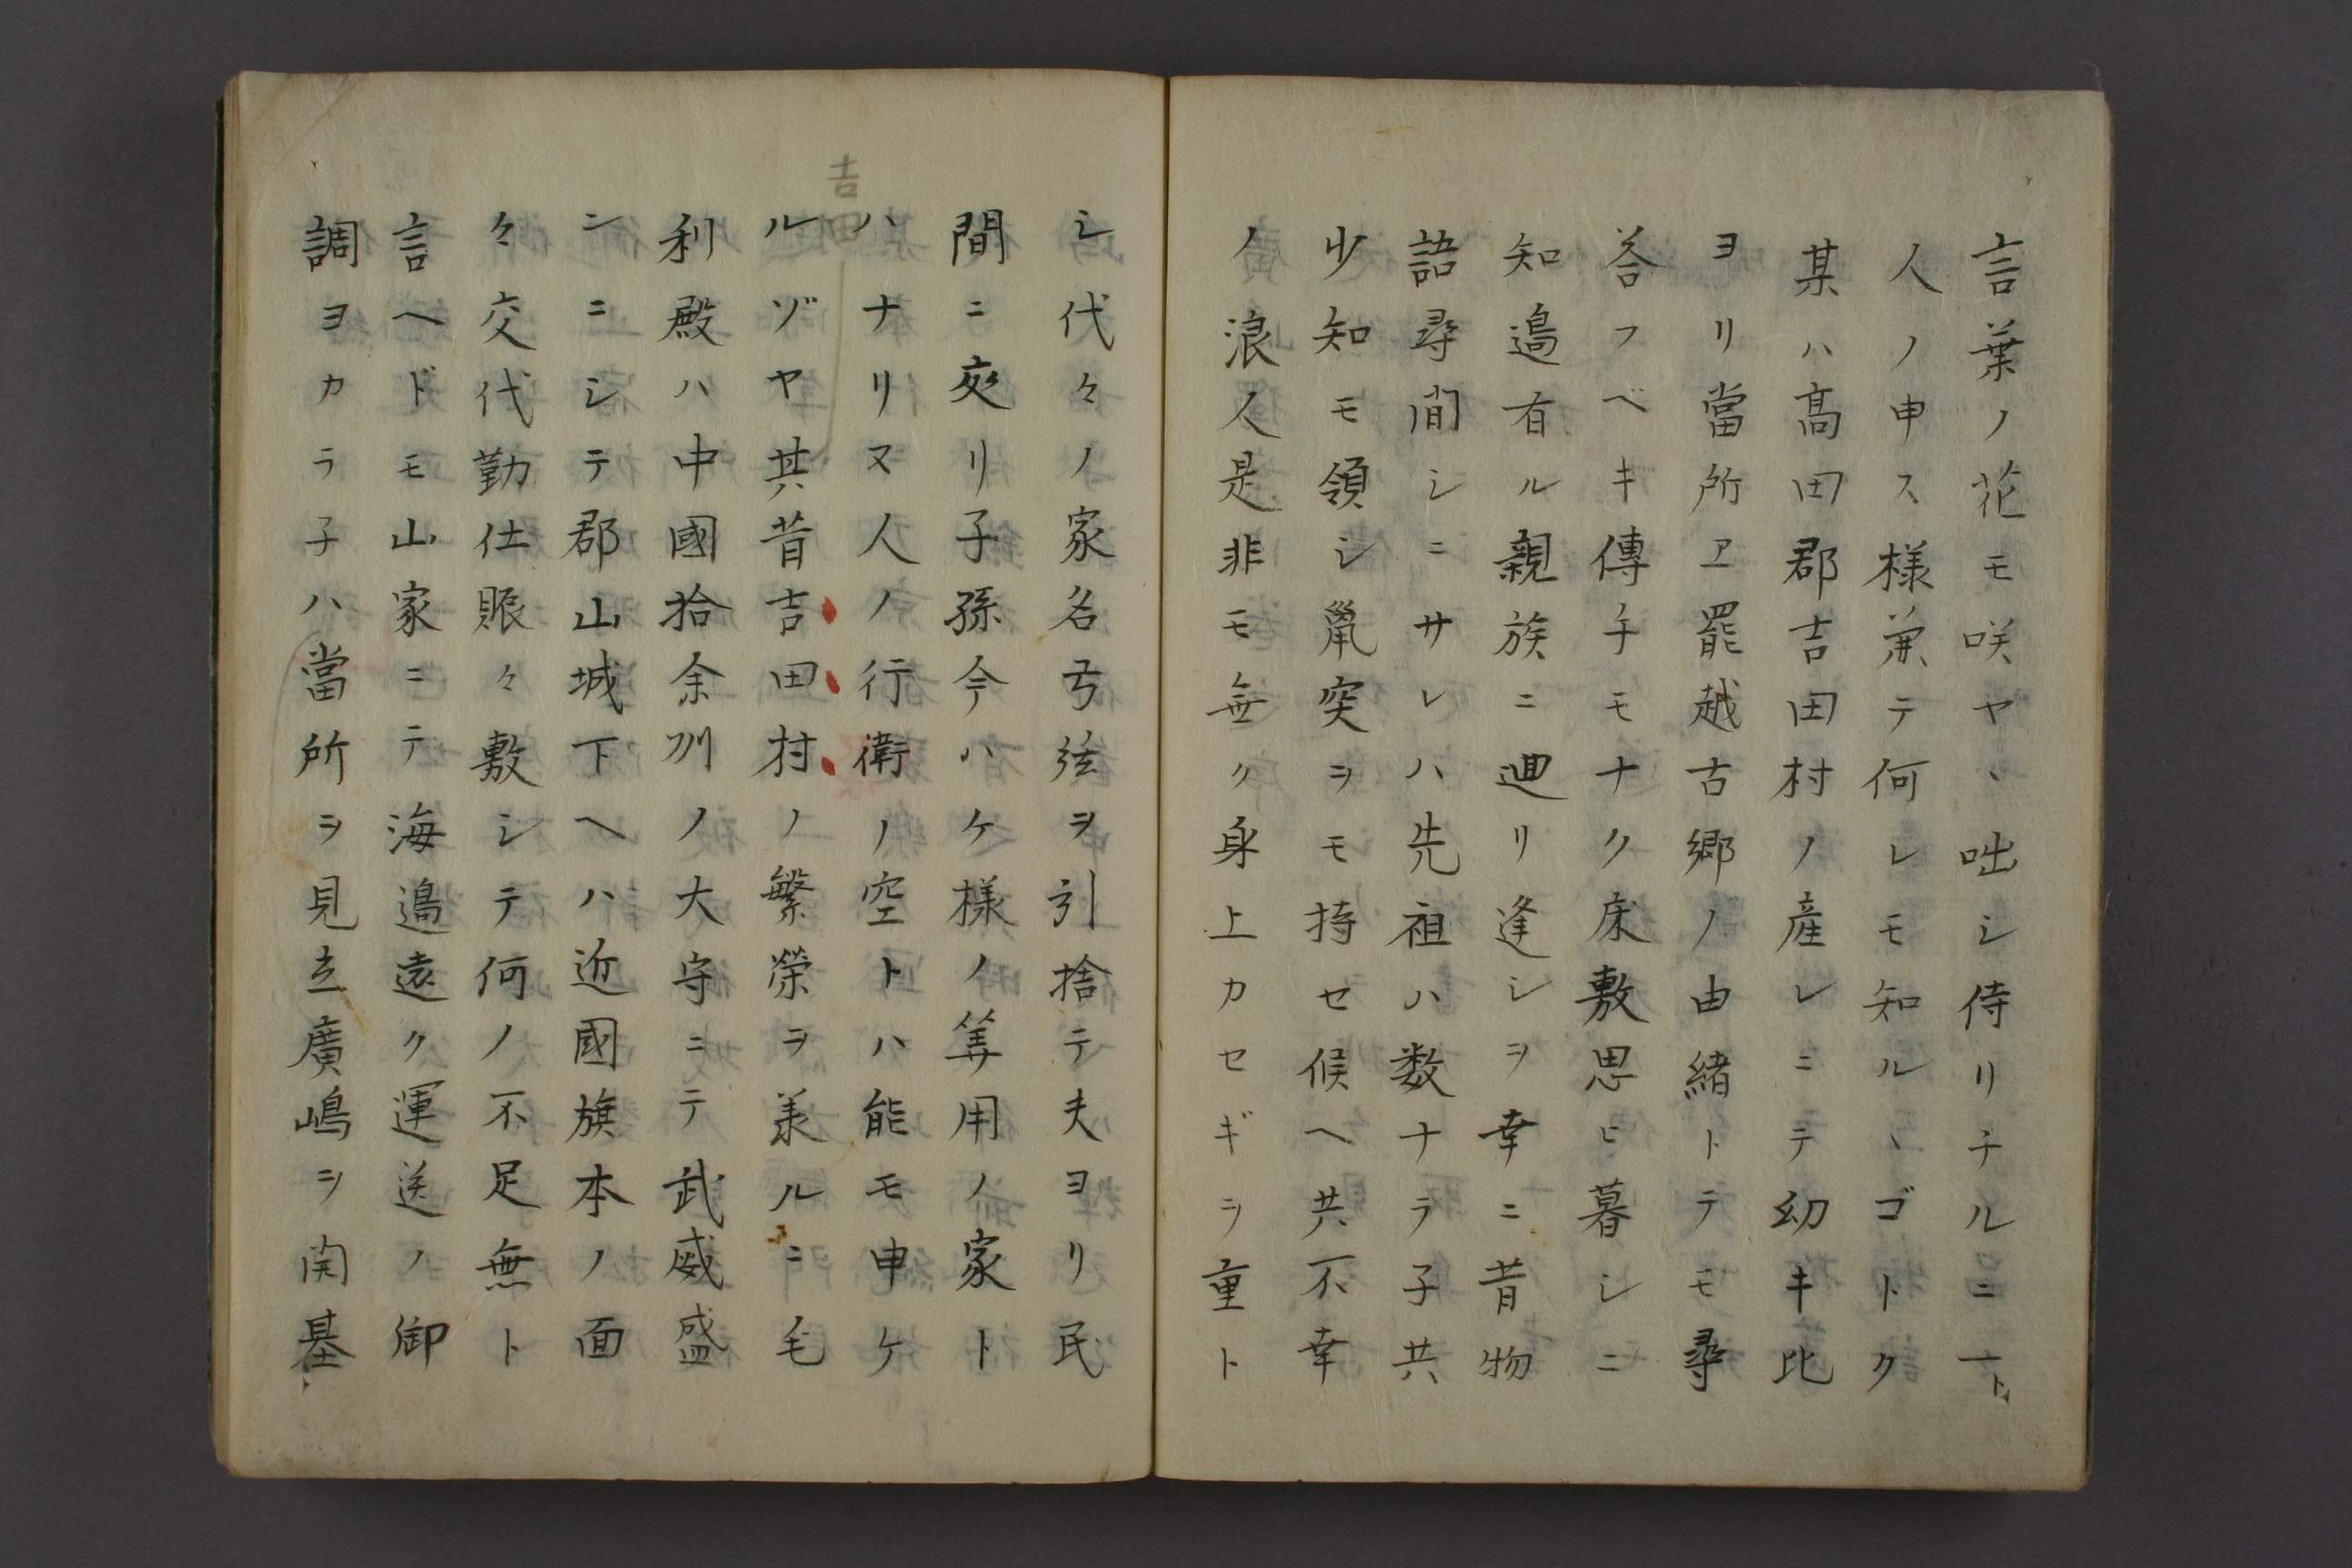 言葉ノ花モ咲ヤヽ咄シ侍リチルニ一ト
人ノ申ス様兼テ何レモ知ルヽゴトク
某ハ髙田郡吉田村ノ産レニテ幼キ比
ヨリ當所ヱ罷越古郷ノ由緒トテモ尋
答フベキ傳手モナク床敷思ヒ暮シニ
知邉有ル親族ニ廻リ逢シヲ幸ニ昔物
語尋間シニサレハ先祖ハ数ナラ子共
少知モ領シ鼡突ヲモ持セ候ヘ共不幸
ノ浪人是非モ無ク身上カセギラ重ト
シ代々ノ家名弓弦ヲ引捨テ夫ヨリ民
間ニ交リ子孫今ハケ様ノ筭用ノ家ト
ハナリヌ人ノ行衛ノ空トハ能モ申ケ
ルゾヤ其昔吉田村ノ繁榮ヲ羨ルニ毛
利殿ハ中國拾余刕ノ大守ニテ武威盛
ンニシテ郡山城下ヘハ近國旗本ノ面
々交代勤仕賑々敷シテ何ノ不足無ト
言ヘドモ山家ニテ海邉遠ク運送ノ御
調ヨカラ子ハ當所ヲ見立廣嶋ヲ開基
吉田